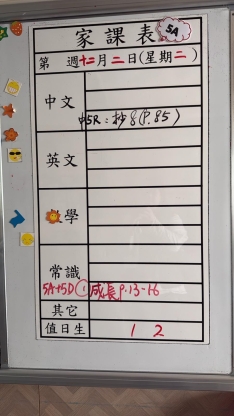 家課表 5A
第 週十二月二日(星期二)
中文
中5R:抄8(P.85)
英文
學
常識
5A+5D①成長p.13-16
其它
值日生 1 2